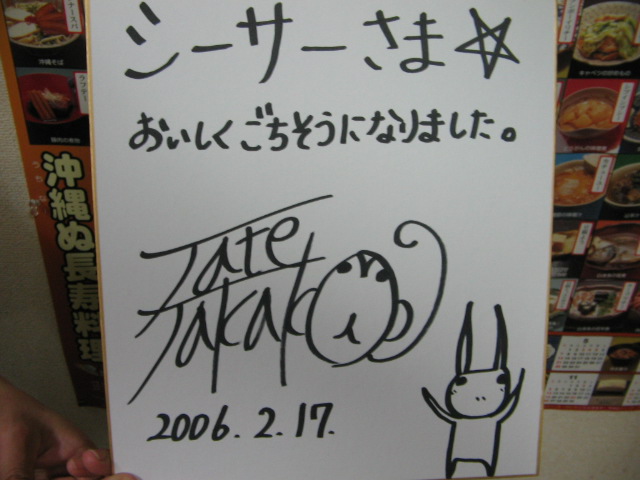 シーサーさま☆
おいしくごちそうになりました。
Tate
Takako
2006.2.17.
沖縄ぬ長寿料理
沖縄そば